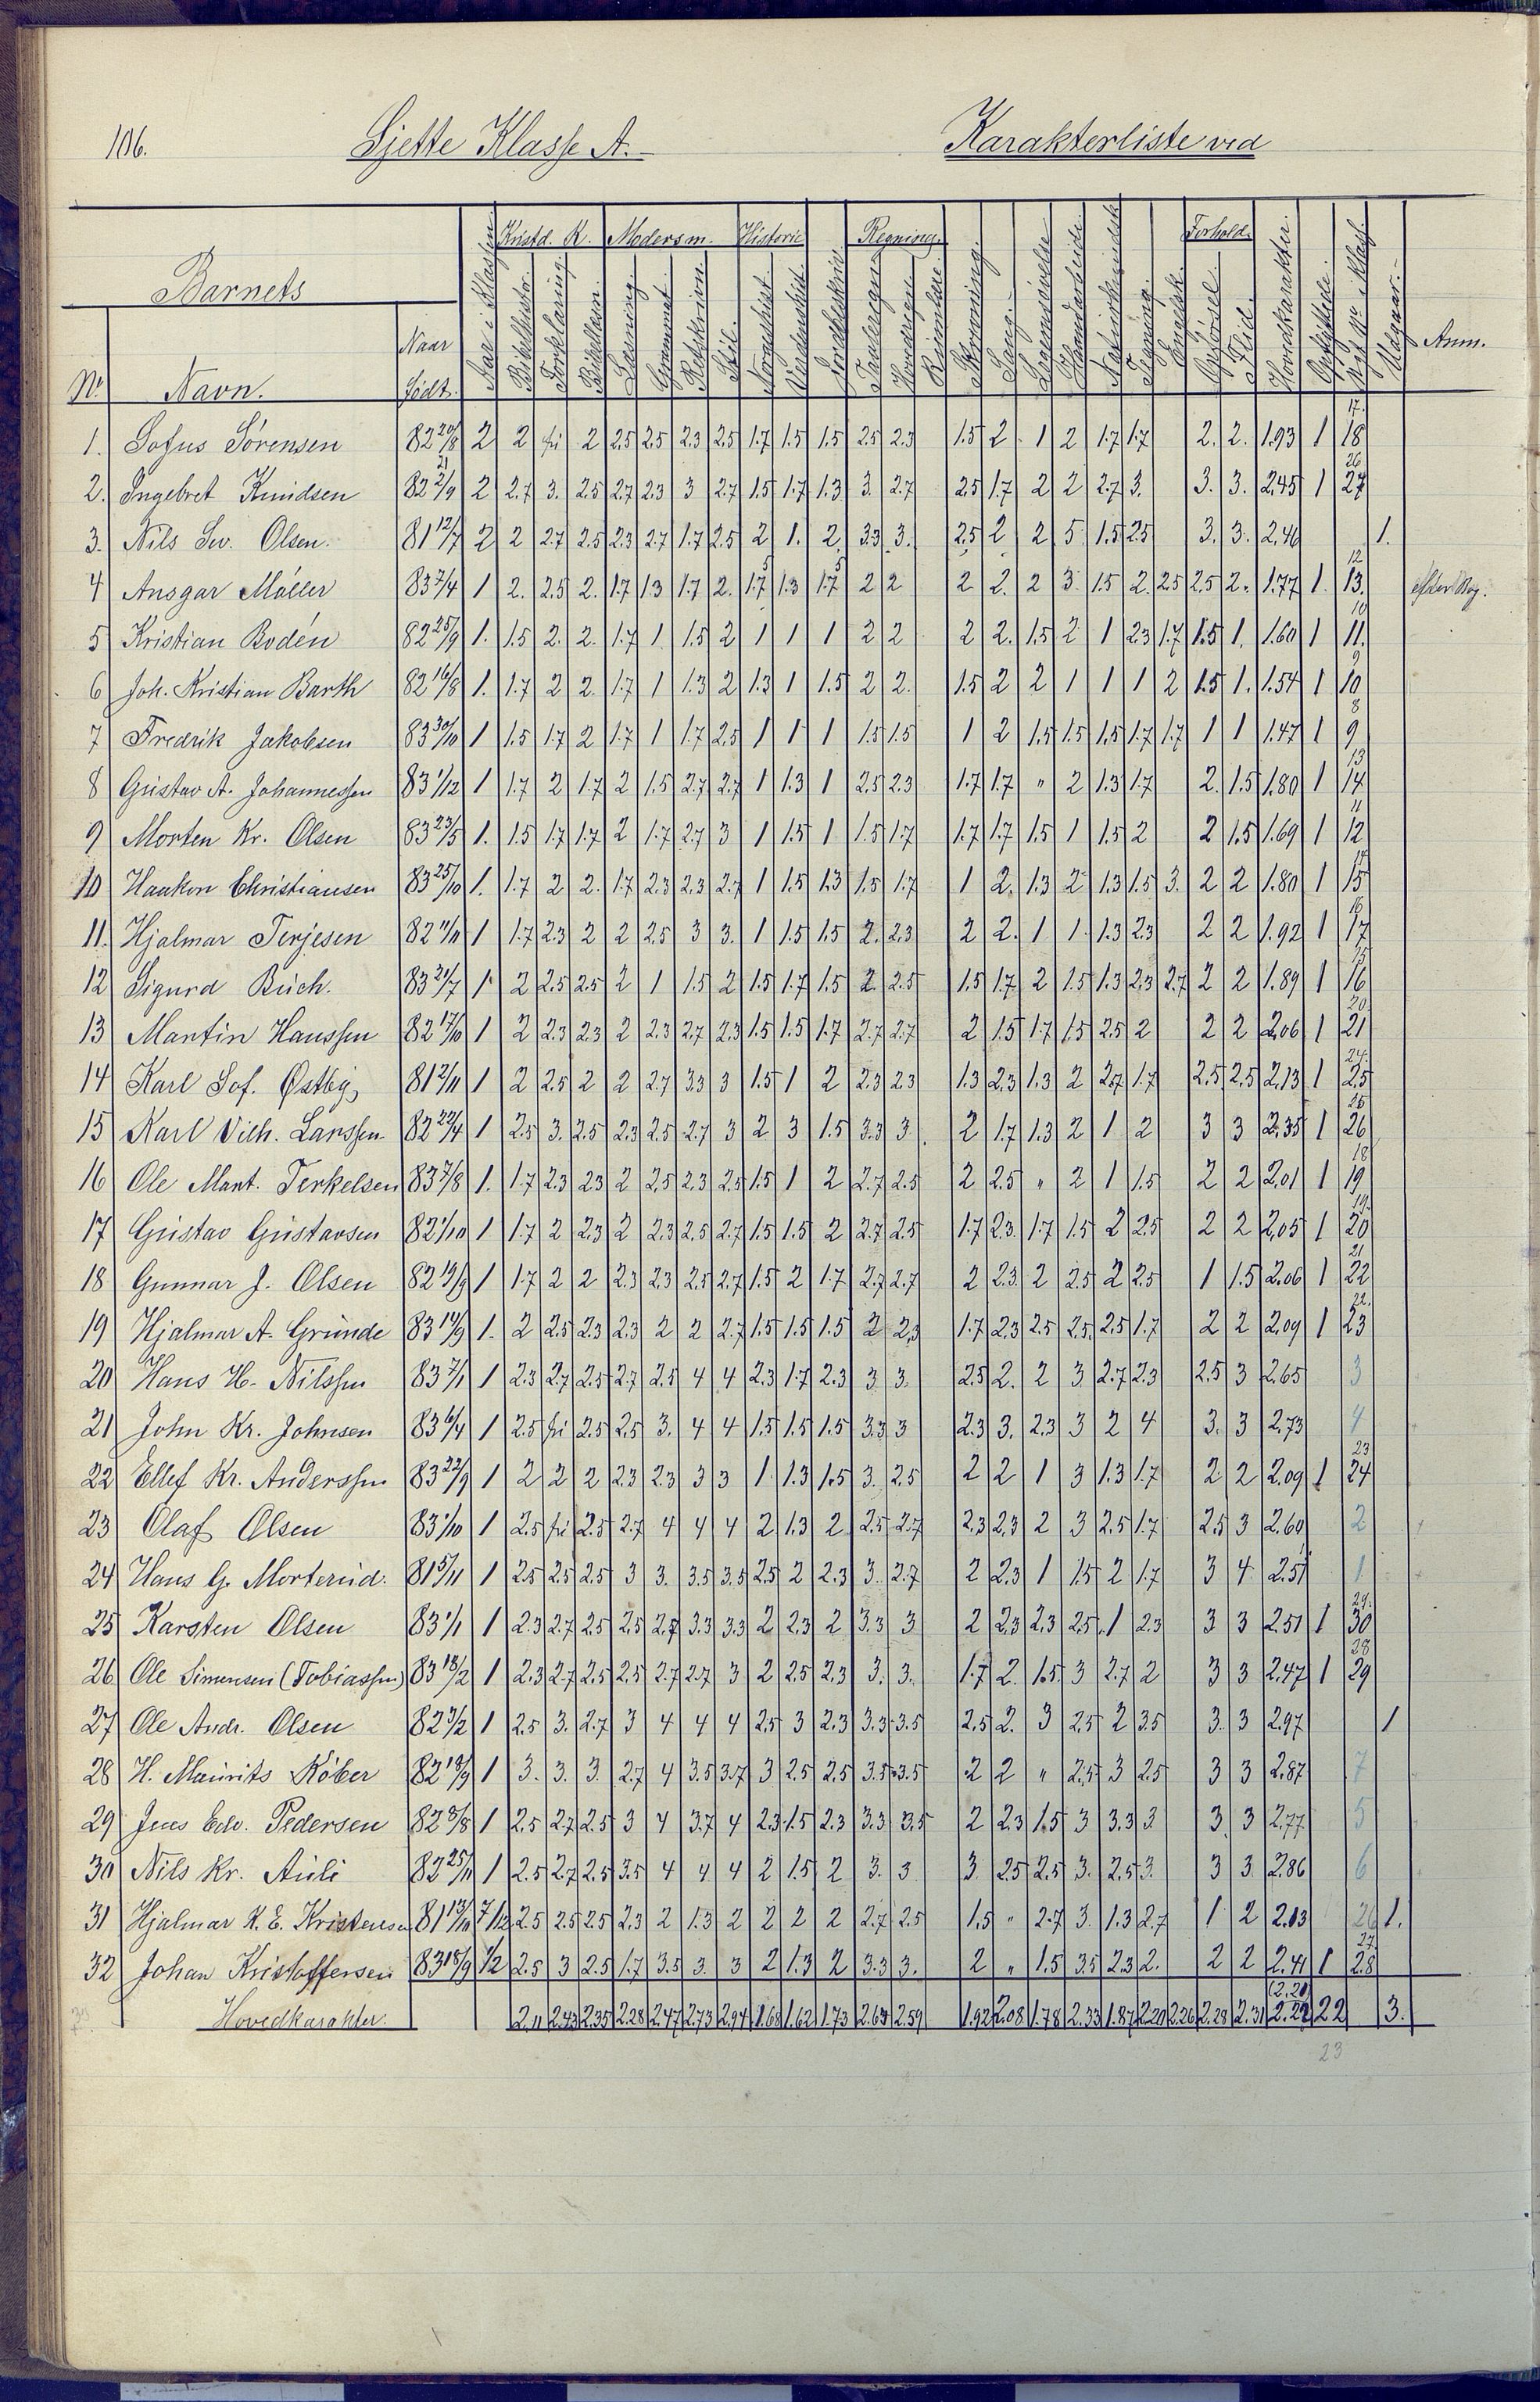 106. Sjette Klasse A.- Karakterliste ved
Barnets
Kristd. K. Modersm. Historie Regning. Forhold.
Nr. Navn. Naar Født. Aar i Klassen Bibelhistor. Forklaring. Læsning. Grammat. Retskrivn. Stil. Norgeshist. Verdenshist. Jordbeskriv. Tavleregn. Hovedregn. Skrivning. Sang. Legemsøvelse Haandarbeide Naturkundsk. Tegning. Engelsk. Opførsel Flid. Hovedkarakter. Opflyttede. Anm.
1. Sofus Sørensen 82 20/8 2 2 fri 2 2.5 2.5 2.3 2.5 1.7 1.5 1.5 2.5 2.3 1.5 2 1 2 1.7 1.7 2. 2. 1.93 1 17. 18
2. Ingebret Knudsen 82 21/9 2 2.7 3. 2.5 2.7 2.3 3 2.7 1.5 1.7 1.3 3. 2.7 2.5 1.7 2 2 2.7 3. 3. 3. 2.45 1 26 27
3. Nils Sev. Olsen. 81 12/7 2 2 2.7 2.5 2.3 2.7 1.7 2.5 2 1. 2. 3.3 3. 2.5 2 2 5 1.5 2.5 3. 3. 2.46 1.
4 Ansgar Møller 83 7/4 1 2. 2.5 2. 1.7 1.3 1.7 2. 1.7 1.3 1.7 2 2 2 2. 2 3 1.5 2. 2.5 2.5 2. 1.77 1. 12 13.
5 Kristian Bodén 82 25/9 1. 1.5 2. 2. 1.7 1 1.5 2 1 1 1 2 2 2 2. 1.5 2 1 2.3 1.7 1.5 1. 1.60 1 10 11.
6 Joh. Kristian Barth 82 16/8 1. 1.7 2 2. 1.7 1 1.3 2 1.3 1 1.5 2 2. 1.5 2 2 1 1 1 2 1.5 1. 1.54 1 9 10
7 Fredrik Jakobsen 83 30/10 1 1.5 1.7 2 1.7 1 1.7 2.5 1 1 1 1.5 1.5 1 2 1.5 1.5 1.5 1.7 1.7 1 1 1.47 1 8 9
8 Gustav A. Johannessen 83 1/12 1 1.7 2 1.7 2 1.5 2.7 2.7 1 1.3 1 2.5 2.3 1.7 1.7 " 2 1.3 1.7 2. 1.5 1.80 1 13 14
9 Morten Kr. Olsen 83 23/5 1. 1.5 1.7 1.7 2 1.7 2.7 3 1 1.5 1 1.5 1.7 1.7 1.7 1.5 1 1.5 2 2 1.5 1.69 1 11 12
10 Haakon Christiansen 83 25/10 1. 1.7 2 2. 1.7 2.3 2.3 2.7 1 1.5 1.3 1.5 1.7 1 2. 1.3 2 1.3 1.5 3. 2 2 1.80 1 15
11. Hjalmar Terjesen 82 11/11 1 1.7 2.3 2 2 2.5 3 3. 1 1.5 1.5 2. 2.3 2 2. 1 1. 1.3 2.3 2 2 1.92 1 16 17
12 Sigurd Buch. 83 21/7 1 2 2.5 2.5 2 1 1.5 2 1.5 1.7 1.5 2 2.5 1.5 1.7 2 1.5 1.3 2.3 2.7 2 2 1.89 1 15 16
13 Martin Hanssen 82 17/10 1 2 2.3 2.3 2 2.3 2.7 2.3 1.5 1.5 1.7 2.7 2.7 2 1.5 1.7 1.5 2.5 2 2 2 2.06 1 20. 21
14 Karl Sof. Østby 81 2/11 1 2 2.5 2 2 2.7 3.3 3 1.5 1 2 2.3 2.3 1.3 2.3 1.3 2 2.7 1.7 2.5 2.5 2.13 1 24. 25
15 Karl Vilh. Larssen. 82 22/4 1 2.5 3. 2.5 2.3 2.5 2.7 3 2 3 1.5 3.3 3. 2 1.7 1.3 2 1 2 3 3 2.35 1 25 26
16 Ole Mart. Terkelsen 83 7/8 1. 1.7 2.3 2.3 2 2.5 2.3 2.5 1.5 1 2 2.7 2.5 2 2.5 " 2 1 1.5 2 2 2.01 1 18 19
17 Gustav Gustavsen 82 1/10 1 1.7 2 2.3 2 2.3 2.5 2.7 1.5 1.5 2 2.7 2.5 1.7 2.3 1.7 1.5 2 2.5 2 2 2.05 1 19. 20
18 Gunnar J. Olsen 82 19/9 1 1.7 2 2 2.3 2.3 2.5 2.7 1.5 2 1.7 2.7 2.7 2 2.3 2 2.5 2 2.5 1 1.5 2.06 1 21 22
19 Hjalmar A. Grunde 83 14/9 1. 2 2.5 2.3 2.3 2 2 2.7 1.5 1.5 1.5 2 2.3 1.7 2.3 2.5 2.5 2.5 1.7 2 2 2.09 1 22. 23
20 Hans H. Nilssen 83 7/1 1 2.3 2.7 2.5 2.7 2.5 4 4 2.3 1.7 2.3 3 3. 2.5 2. 2 3 2.7 2.3 2.5 3 2.65 3
21 John Kr. Johnsen 83 6/4 1 2.5 fri 2.5 2.5 3. 4 4 1.5 1.5 1.5 3.3 3 2.3 3. 2.3 3 2 4 3. 3 2.73 4
22 Ellef Kr. Anderssen 83 22/9 1 2 2 2 2.3 2.3 3 3 1 1.3 1.5 3. 2.5 2 2 1 3 1.3 1.7 2 2 2.09 1 23 24
23 Olaf Olsen 83 1/10 1 2.5 fri 2.5 2.7 4 4 4 2 1.3 2 2.5 2.7 2.3 2.3 2 3 2.5 1.7 2.5 3 2.60 2
24 Hans G. Morterud. 81 5/11 1 2.5 2.5 2.5 3 3. 3.5 3.5 2.5 2 2.3 3. 2.7 2 2.3 1 1.5 2 1.7 3 4 2.51 1
25 Karsten Olsen 83 1/1 1 2.3 2.7 2.5 2.5 2.7 3.3 3.3 2 2.3 2 3.3 3 2 2.3 2.3 2.5 1 2.3 3 3 2.51 1 29. 30
26 Ole Simensen (Tobiassen) 83 18/2 1 2.3 2.7 2.5 2.5 2.7 2.7 3 2 2.5 2.3 3. 3. 1.7 2 1.5 3 2.7 2 3 3 2.47 1 28 29
27 Ole Andr. Olsen 82 3/2 1 2.5 3. 2.7 3 4 4 4 2.5 3 2.3 3.3 3.5 2.5 2. 3 2.5 2 3.5 3. 3 2.97 1
28 H. Mauritz Köber 82 18/9 1 3. 3. 3. 2.7 4 3.5 3.7 3 2.5 2.5 3.5 3.5 2 2 " 2.5 3 2.5 3 3 2.87 7
29 Jens Edv. Pedersen 82 8/8 1 2.5 2.7 2.5 3 4 3.7 4 2.3 1.5 2.3 3.3 3.5 2 2.3 1.5 3 3.3 3 3 3 2.77 5
30 Nils Kr. Auli 82 25/11 1 2.5 2.7 2.5 3.5 4 4 4 2 1.5 2 3. 3 3. 2.5 2.5 3. 2.5 3. 3 3 2.86 6
31 Hjalmar K. E. Kristensen 81 13/11 7/12 2.5 2.5 2.5 2.3 2 1.3 2 2 2 2 2.7 2.5 1.5 " 2.7 3. 1.3 2.7 1 2 2.03 26 1.
32 Johan Kristoffersen 83 18/9 1/2 2.5 3 2.5 1.7 3.5 3. 3 2 1.3 2 3.3 3. 2 " 1.5 3.5 2.3 2. 2 2 2.41 1 27 28
Hovedkarakter. 2.11 2.43 2.35 2.28 2.47 2.73 2.94 1.68 1.62 1.73 2.63 2.59 1.92 2.08 1.78 2.33 1.87 2.20 2.26 2.28 2.31 2.22 22 3.
23